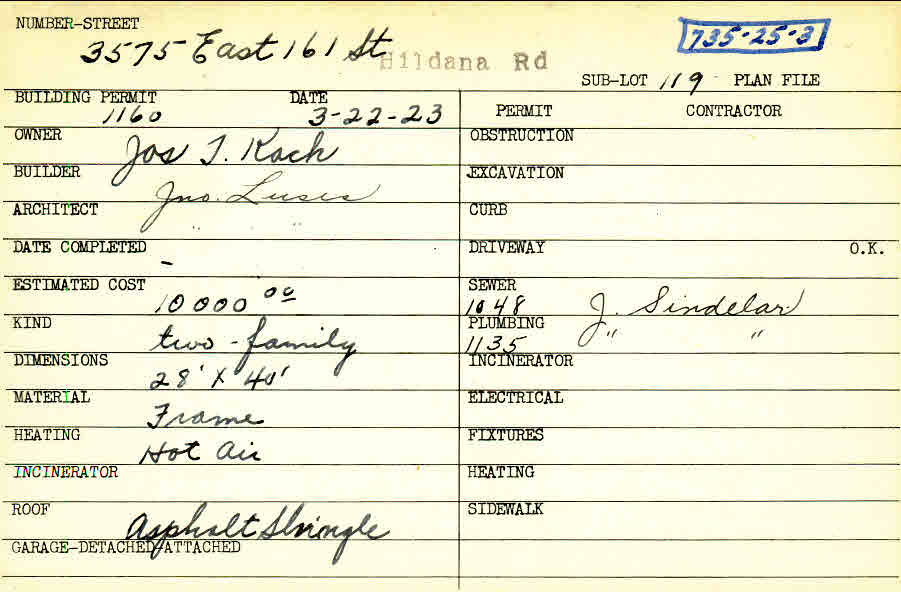 NUMBER-STREET
3575 East 161 St Hildana Rd
735-25-3
SUB-LOT 119 PLAN FILE
BUILDING PERMIT DATE
1160 3-22-23
PERMIT CONTRACTOR
OWNER Jos T. Koch
OBSTRUCTION
BUILDER Jno. Lusis
EXCAVATION
ARCHITECT " "
CURB
DATE COMPLETED -
DRIVEWAY O.K.
ESTIMATED COST 10000 00
SEWER
1048 J. Sindelar
KIND two-family
PLUMBING
1135 " "
DIMENSIONS 28' X 40'
INCINERATOR
MATERIAL Frame
ELECTRICAL
HEATING Hot Air
FIXTURES
INCINERATOR
HEATING
ROOF Asphalt Shingle
SIDEWALK
GARAGE-DETACHED-ATTACHED